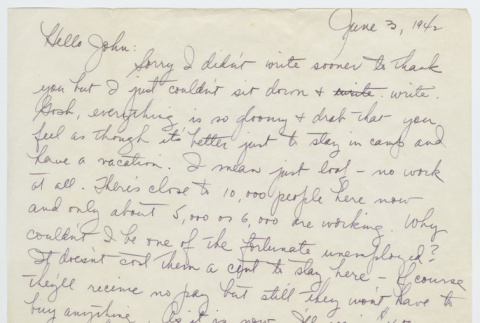 June 3, 1942
Hello John:
Sorry I didn't write sooner to thank
you but I just couldn't sit down & write write.
Gosh, everything is so gloomy & drab that you
feel as though it's better just to stay in camp and
have a vacation. I mean just loaf - no work
at all. There's close to 10,000 people here now
and only about 5,000 or 6,000 are working. Why
couldn't I be one of the fortunate unemployed?
It doesn't cost them a cent to stay here - Of course
they'll receive no pay but still they won't have to
buy anything. As it is now, I'll